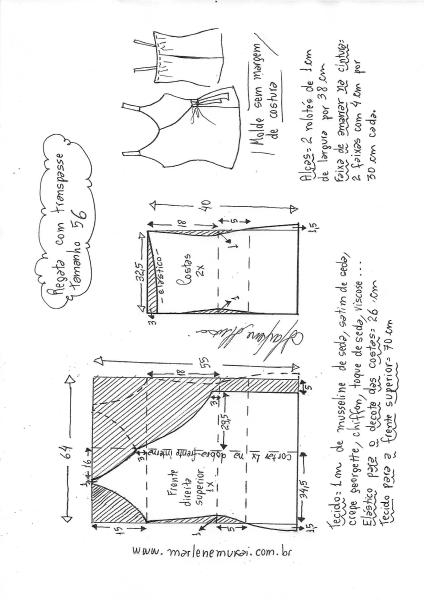 Regata com transpasse
Tamanho 56
Molde sem margem
de costura
Alças= 2 rolotés de 1 cm
de largura por 38 cm
Faixa de amarrar na cintura:
2 faixas com 4 cm por
30 cm cada.
40
18
5
32,5
elástico
Costas
2x
3
1
1
1,5
64
16
3
55
18
3
5
15
3
29,5
Frente
direita
superior
1x
corta 1x na dobra frente interna
1
34,5
1,5
www.marlenemukai.com.br
Tecido= 1 m de musseline de seda, satim de seda,
crepe georgette, chiffon, toque de seda, viscose...
Elástico para o decote das costas= 26 cm
Tecido para a frente superior= 70 cm